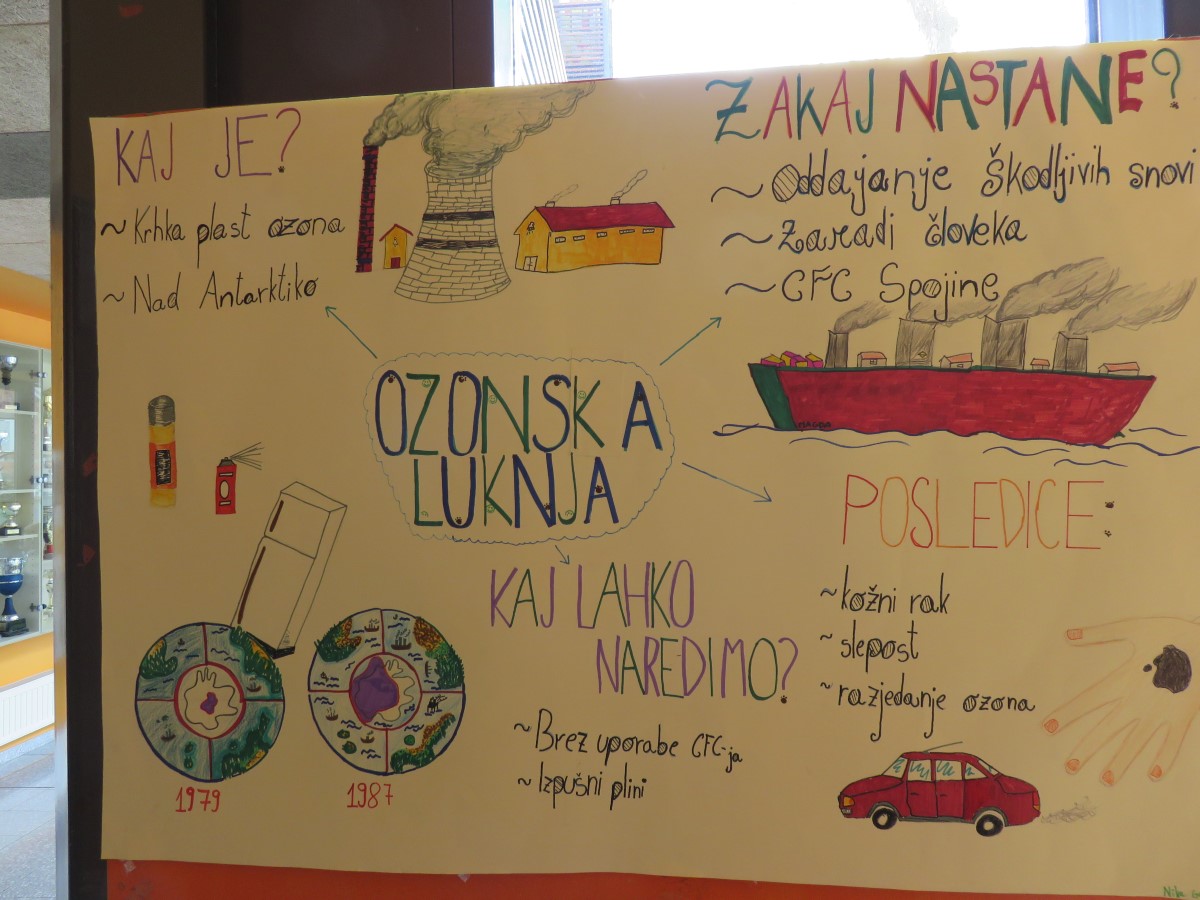 KAJ JE?
~ Krhka plast ozona
~ Nad Antarktiko
ZAKAJ NASTANE?
~ Oddajanje škodljivih snovi
~ Zaradi človeka
~ CFC Spojine
OZONSKA
LUKNJA
POSLEDICE:
~ kožni rak
~ slepost
~ razjedanje ozona
KAJ LAHKO
NAREDIMO?
~ Brez uporabe CFC-ja
~ Izpušni plini
1979
1987